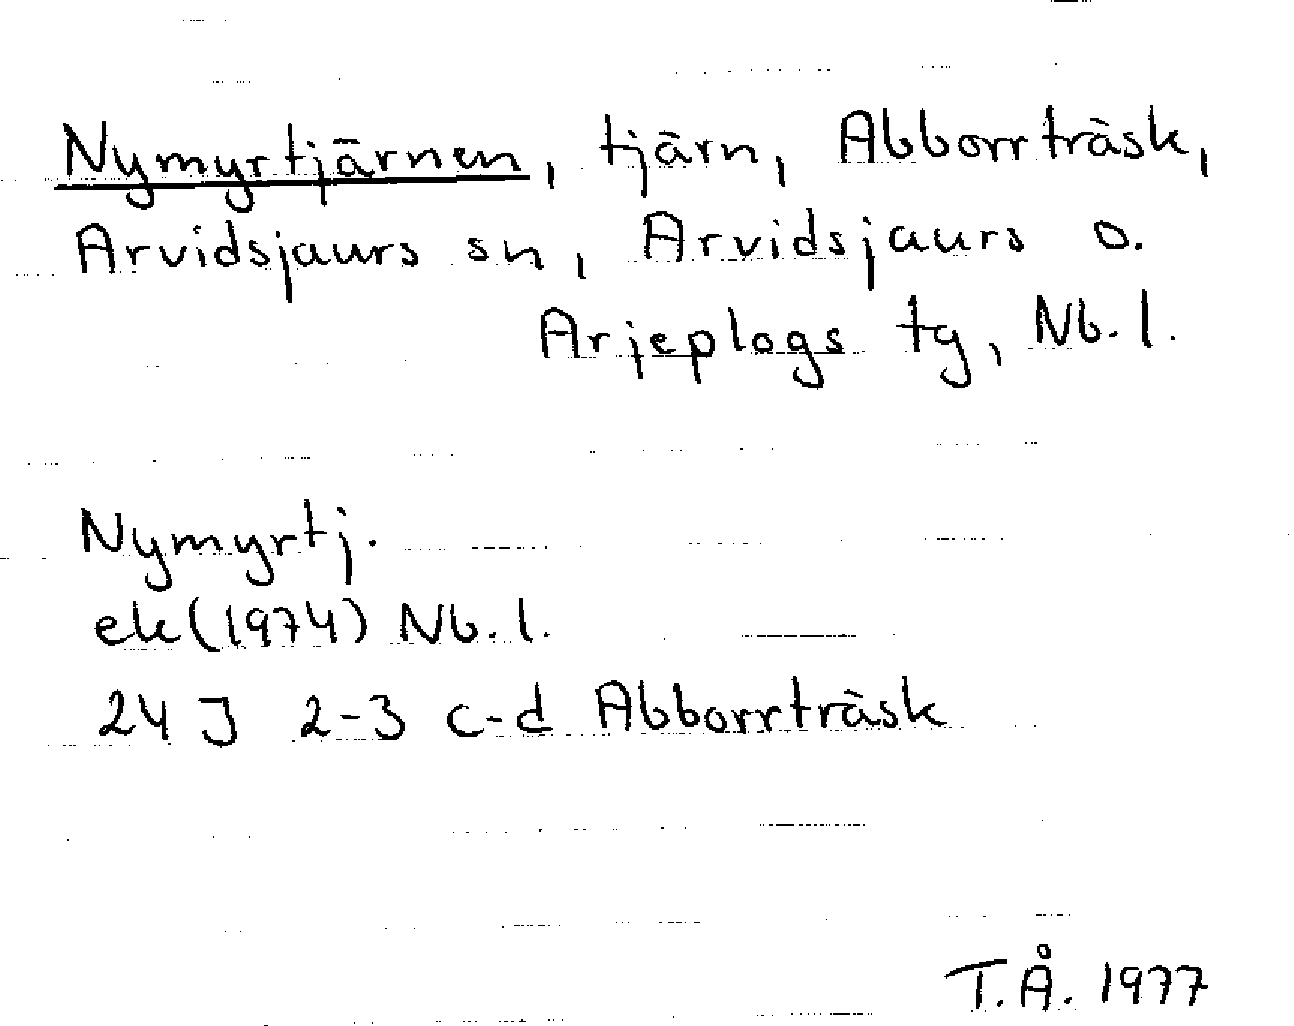 Nymyrtjärnen, tjärn, Abborrträsk,
Arvidsjaurs sn, Arvidsjaurs o.
Arjeplogs tg, Nb. l.
Nymyrtj.
ek (1974) Nb. l.
24 J 2-3 c-d Abborrträsk
T.Å. 1977